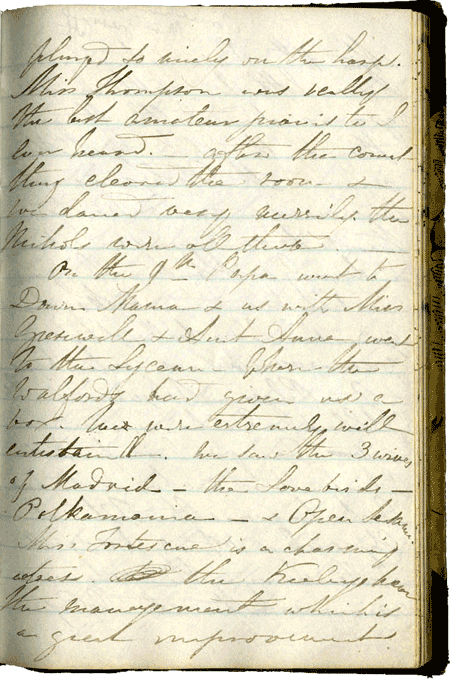 played so nicely on the harp.
Miss Thompson was really
the best amateur pianiste I
ever heard. After the concert
they cleared the room &
we danced very merrily. the
Nichols were all there.
On the 9th Papa went to
Down. Mama & us with Miss
& Aunt Anne went
to the Lyceum. Where the
Walfords had given us a
box. We were extremely well
entertained. We saw the 3 wives
of Madrid – the Love birds –
Polkamania – & Open Sesame.
Miss Fortescue is a charming
actress. the Keeleys have
the management which is
a great improvement.